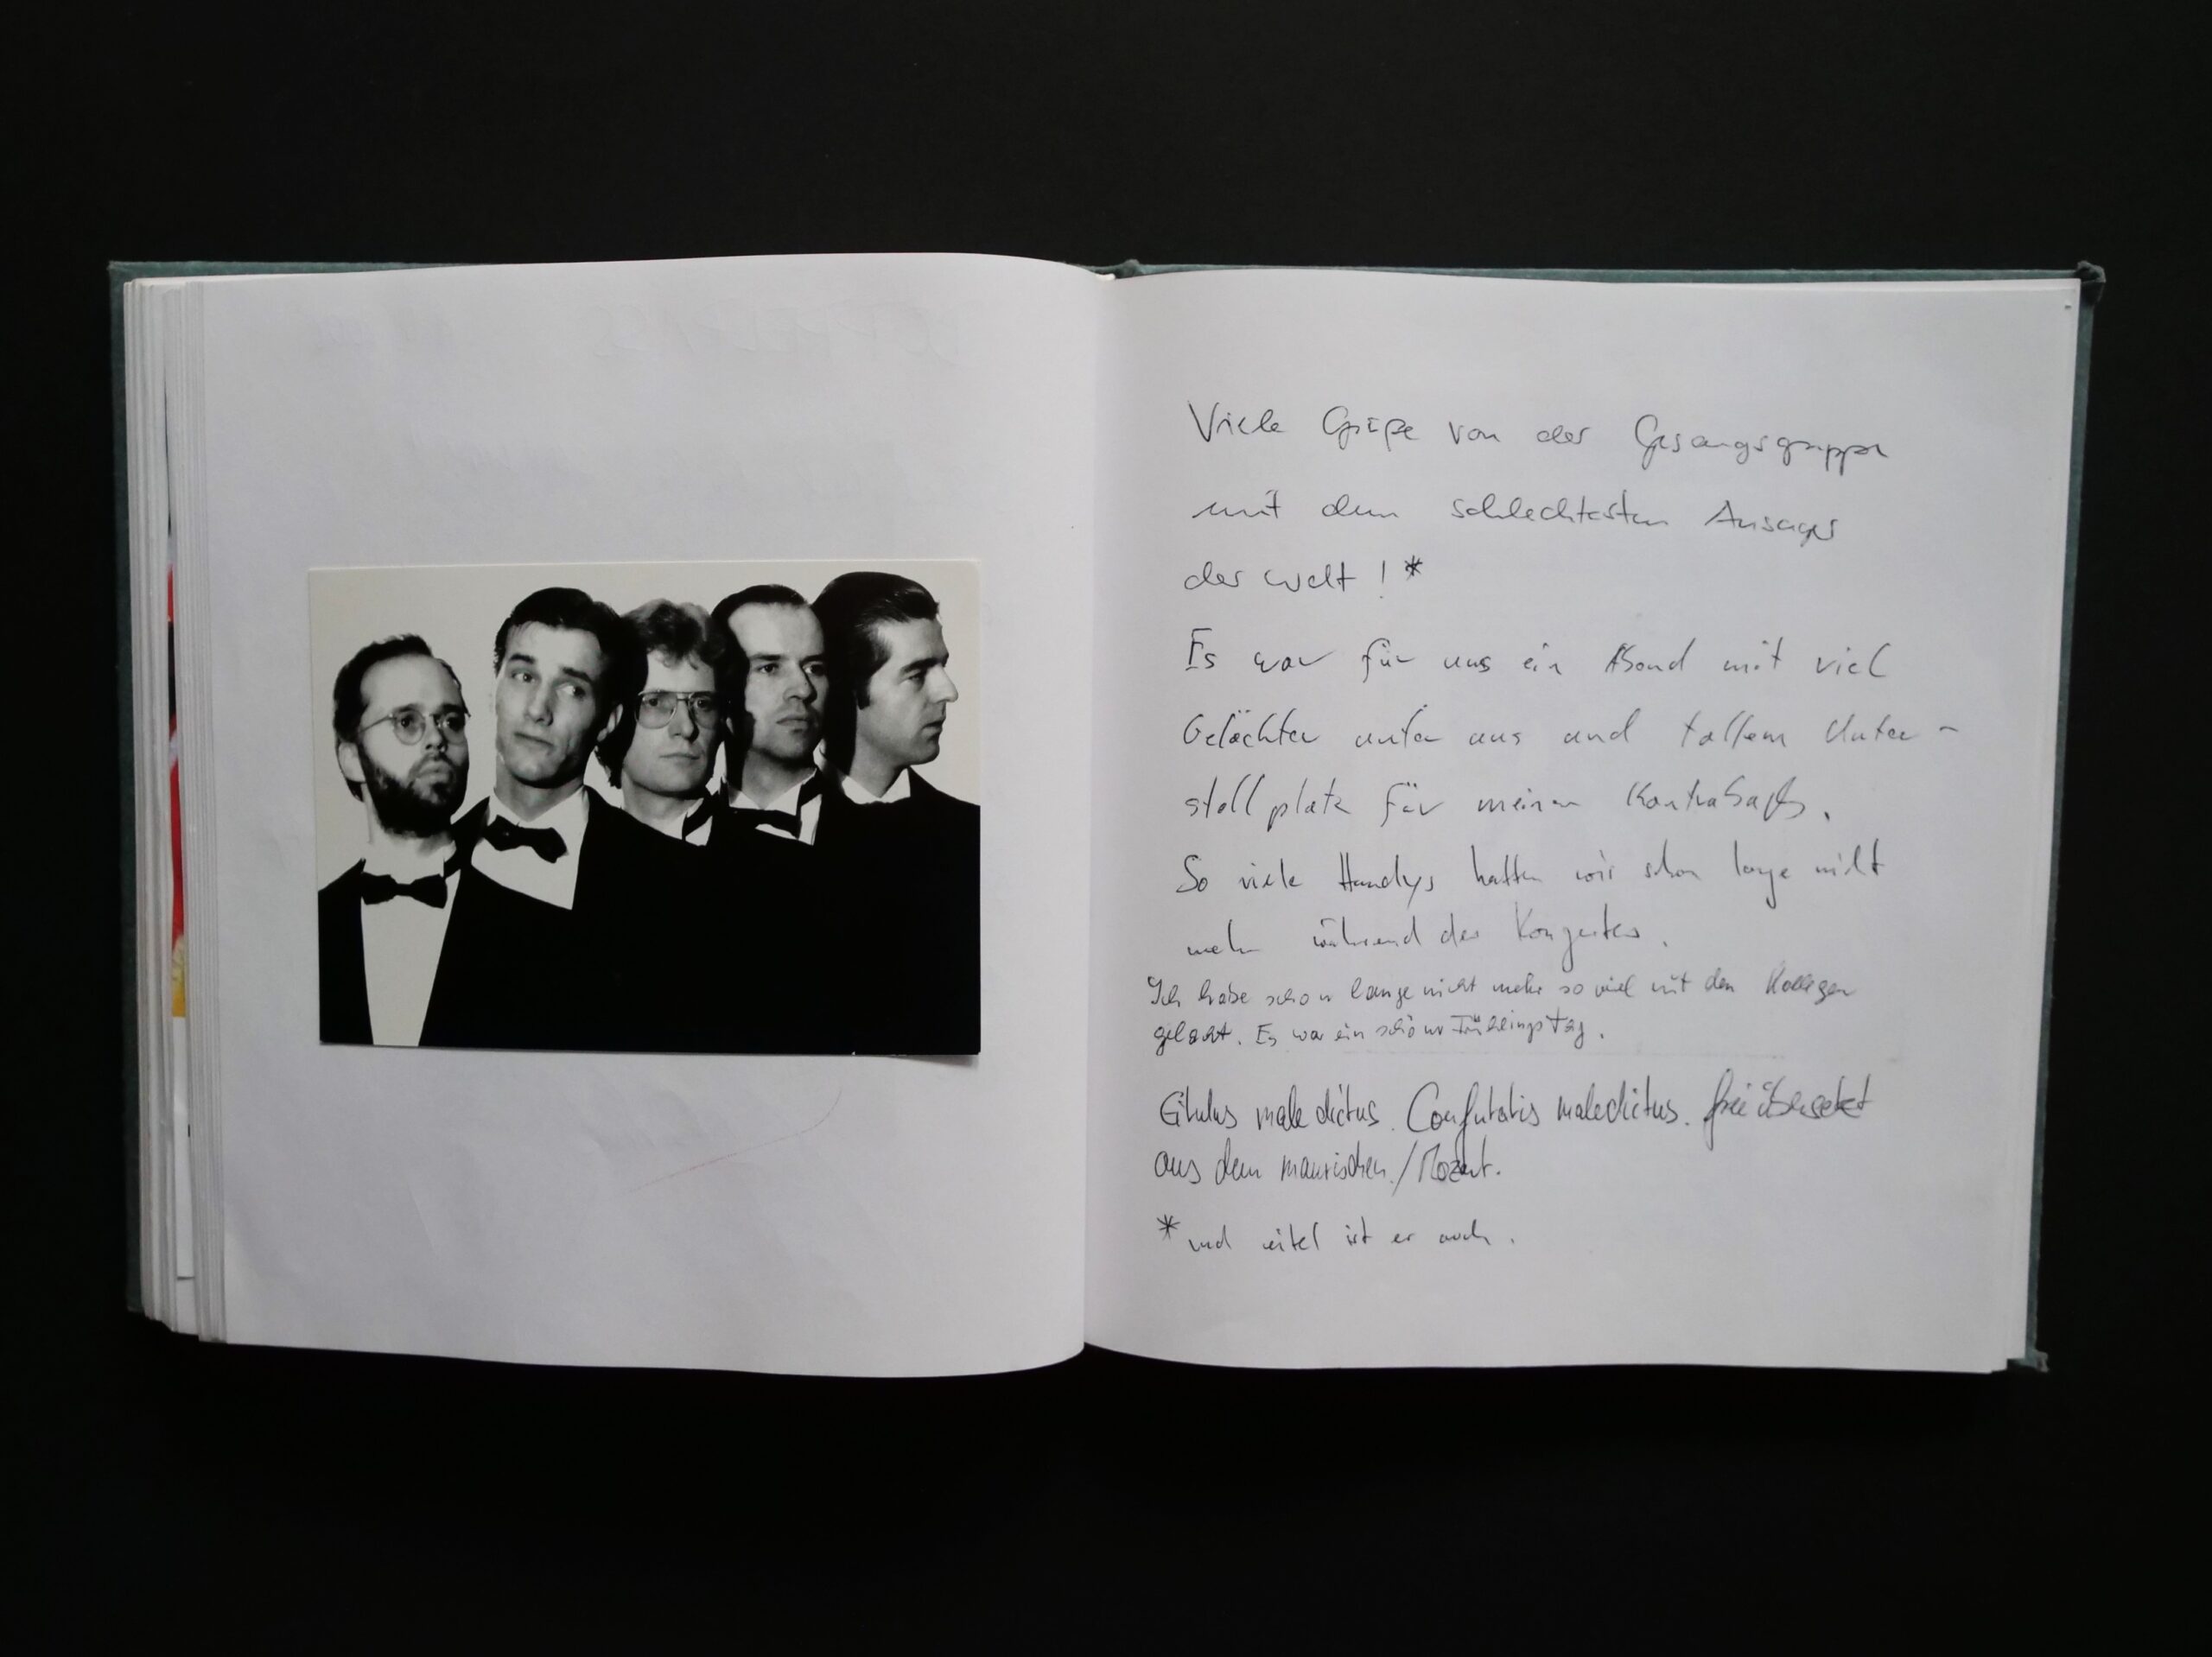 Viele Grüße von der Gesangsgruppe
mit dem schlechtesten Ansager
der Welt ! *
Es war für uns ein Abend mit viel
Gelächter unter uns und tollem Unter-
stellplatz für meinen Kontrabaß.
So viele Handys hatten wir schon lange nicht
mehr während des Konzertes.
Ich habe schon lange nicht mehr so viel mit den Kollegen
gelacht. Es war ein schöner Frühlingstag.
maledictus. Confutatis maledictus. frei übersetzt
aus dem maurischen / Mozart.
* und eitel ist er auch.